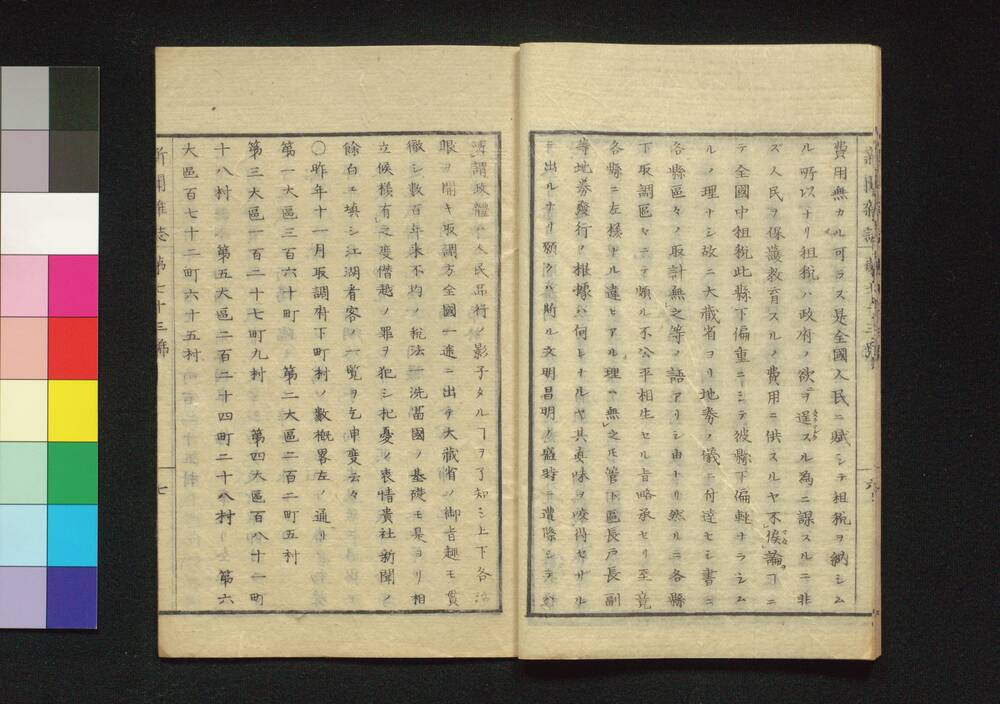 費用無カル可ラス是全國人民ニ賦シテ租税ヲ納シム
ル所以ナリ租税ハ政府ノ欲ヲ逞スル為ニ謀スルニ非
ズ人民ヲ保護教育スルノ費用ニ供スルヤ不俟論ヿニ
テ全國中租税此縣下偏重ニシテ彼縣下偏輕ナラシム
ルノ理ナシ故ニ大藏省ヨリ地券ノ儀ニ付達セシ書ニ
各縣區々ノ取計無之等ノ語アリシ由ナリ然ルニ各縣
下取調區々ニテ頗ル不公平相生セル旨略承セリ至竟
各縣ニ左様ナル違ヒアルノ理ハ無之𪜈管下區長戸長副
等地券發行ノ根據ハ何レナルヤ其真味ヲ咬得セザル
ニ出ルナリ願クハ斯ル文明昌明ノ盛時ニ遭際シテ
所謂政體ハ人民品行ノ影子タルヿヲ了知シ上下各
眼ヲ開キ取調方全國一途ニ出テ大藏省ノ御旨趣モ貫
徹シ數百年来不均ノ税法一洗富國ノ基礎モ是ヨリ相
立候様有之度僣越ノ罪ヲ犯シ杞憂ノ衷情貴社新聞ノ
餘白ニ填シ江湖看客ノ一覧ヲ乞申度云々
〇昨年十一月取調府下町村ノ數概畧左ノ通リ
第一大區三百六十町　第二大區二百二町五村
第三大區一百二十七町九村　第四大區百八十一町
十八村　第五大區二百二十四町二十八村　第六
大區百七十二町六十五村
新聞雑誌　第七十三號　七